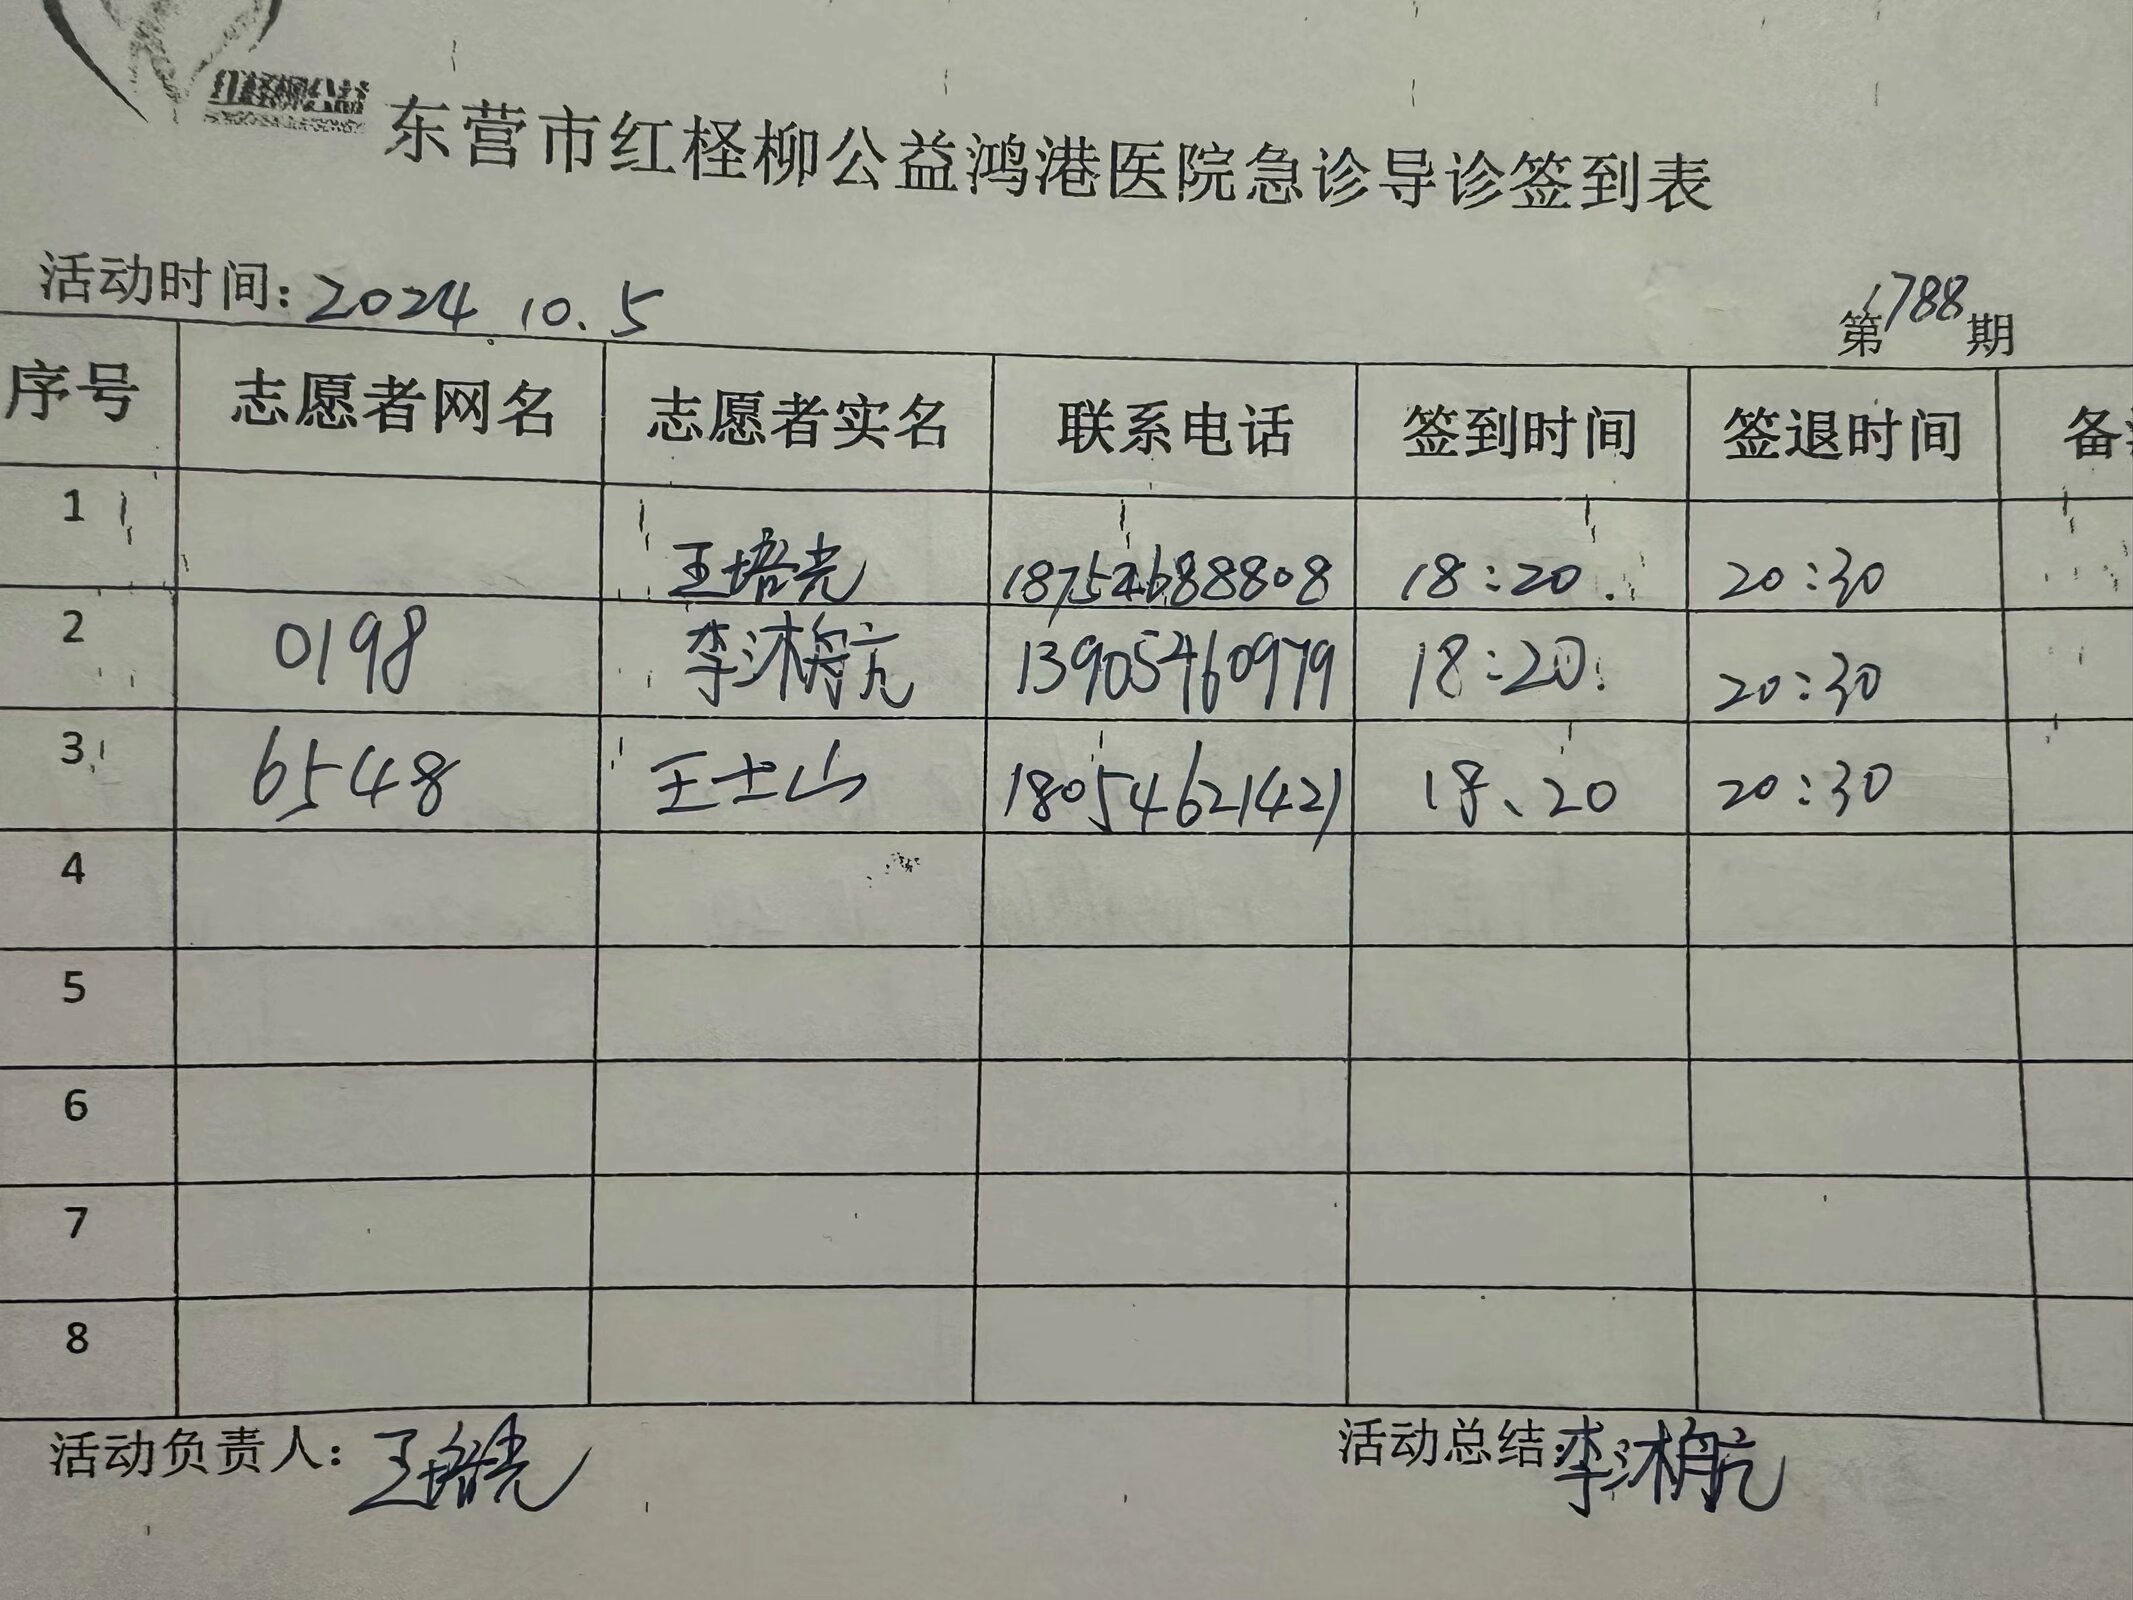 红柽柳公益
东营市红柽柳公益鸿港医院急诊导诊签到表
活动时间: 2024 10.5
第1788期
序号 志愿者网名 志愿者实名 联系电话 签到时间 签退时间 备
1 王培光 18754688808 18:20 20:30
2 0198 李沐航 13905460979 18:20 20:30
3 6548 王士山 18054621421 18、20 20:30
4
5
6
7
8
活动负责人: 王培光 活动总结: 李沐航